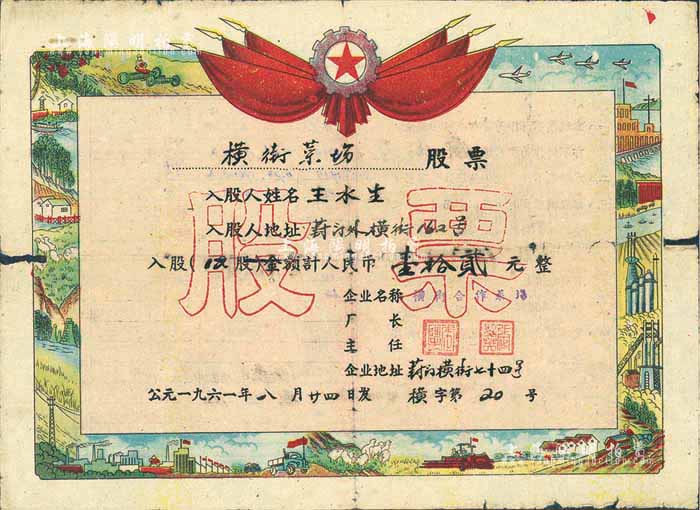 横街菜场 股票
入股人姓名 王水生
入股人地址 葑门外横街
入股(12股)金额計人民币 壹拾貳 元整
股票
企业名称 横街合作菜場
厂長
主任
企业地址 葑门横街七十四号
公元一九六一年八月廿四日发 横字第20号